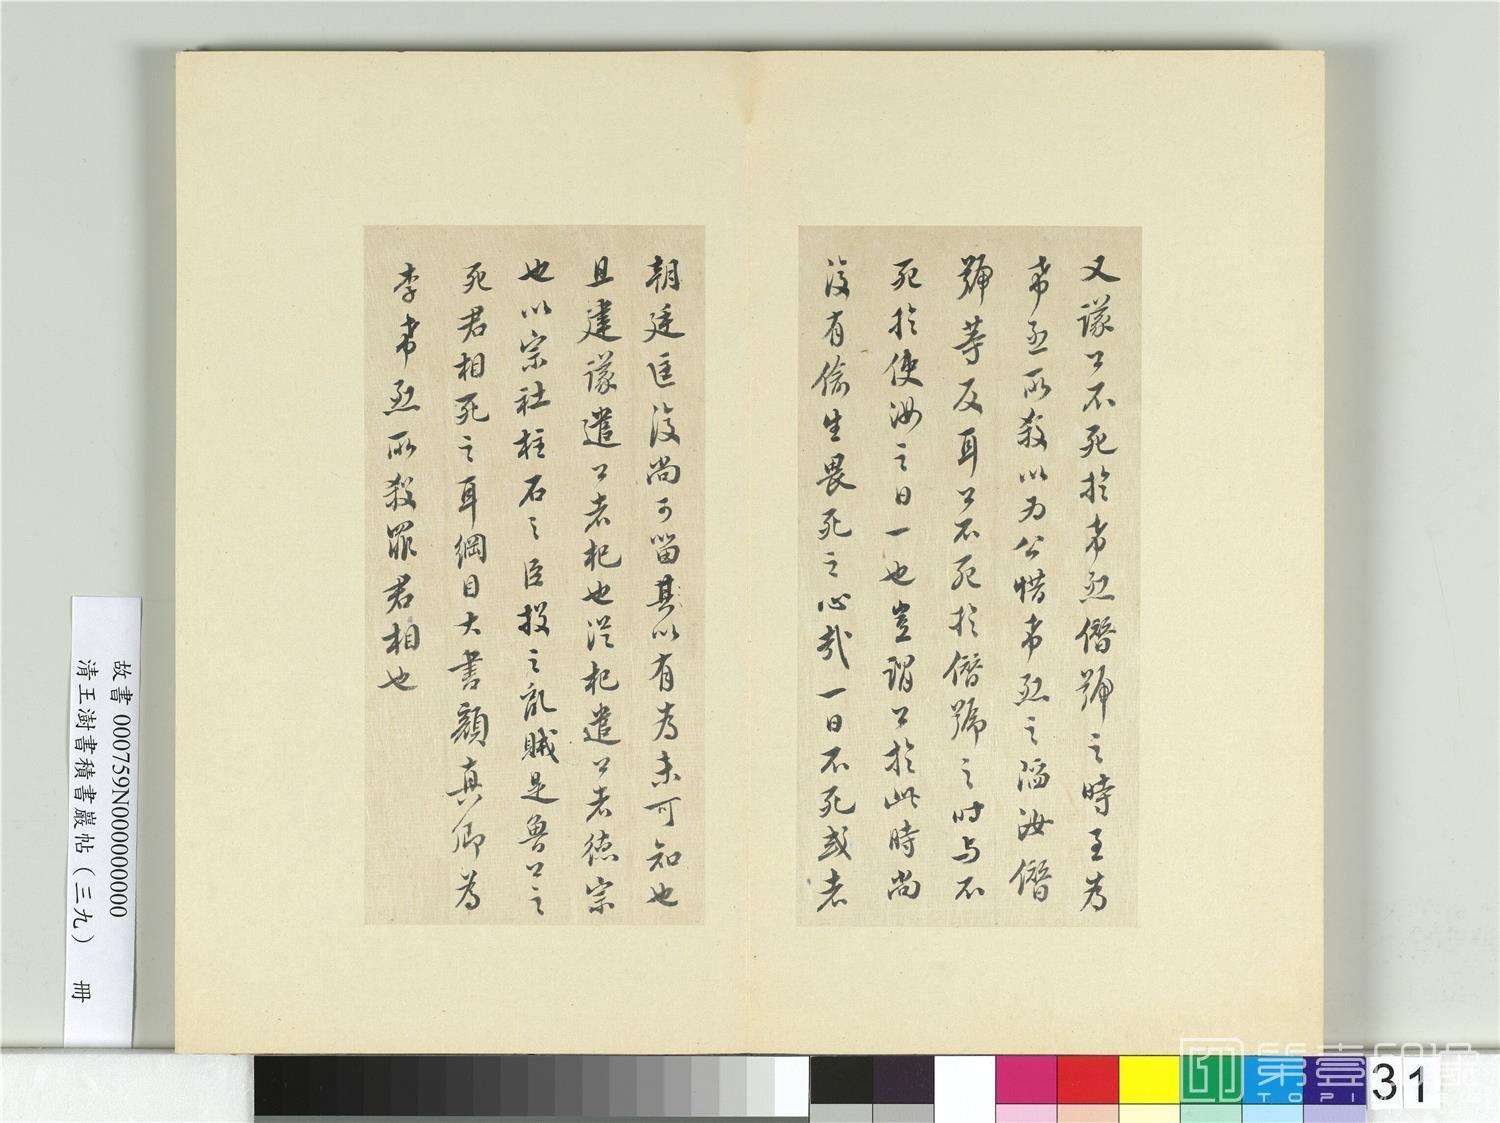 又議公不死於希烈僭號之時至為
希烈所殺以為公惜希烈之陷汝僭
號等反耳公不死於僭號之時与不
死於使汝之日一也豈謂公於此時尚
復有偷生畏死之心哉一日不死或者
朝廷匡復尚可留其以有為未可知也
且建議遣公者杞也從杞遣公者德宗
也以宗社柱石之臣投之亂賊是魯公之
死君相死之耳綱目大書顏真卿為
李希烈所殺罪君相也
故書 000759N000000000
清王澍書積書巖帖(三九) 冊
31
第壹印象